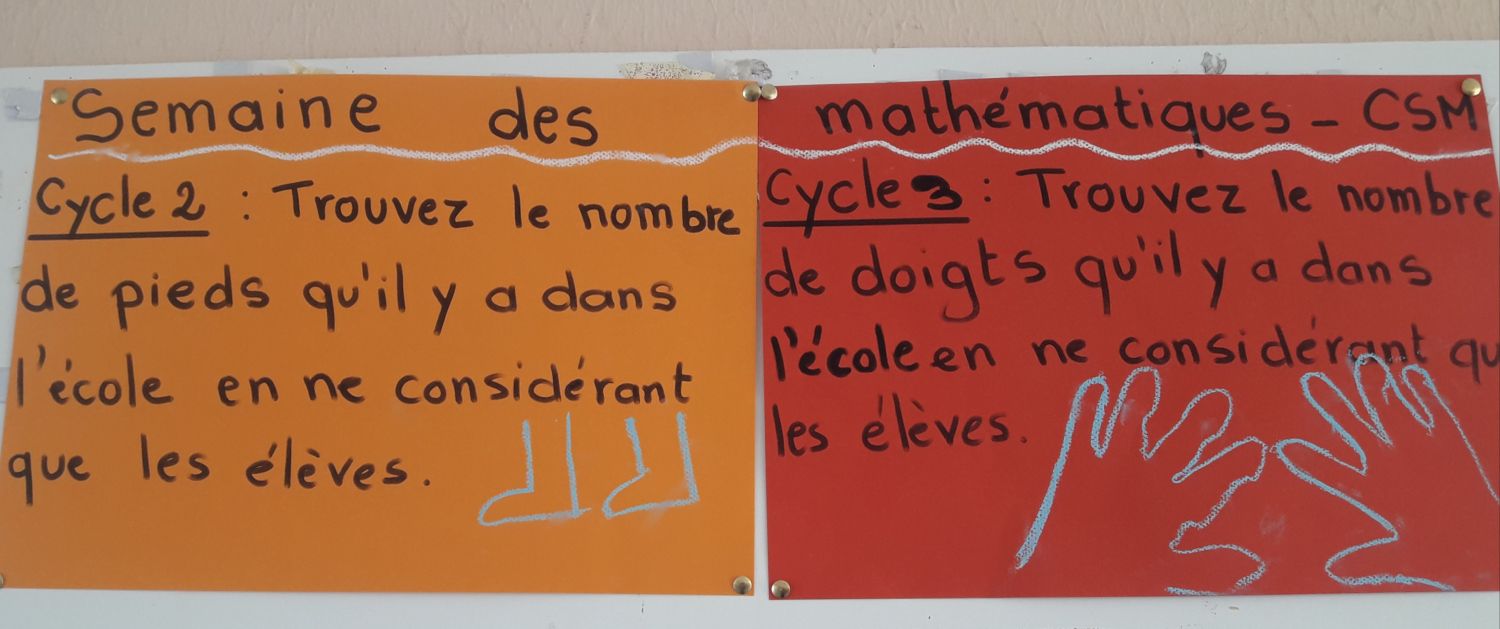 Semaine des mathématiques - CSM
Cycle 2 : Trouvez le nombre
de pieds qu'il y a dans
l'école en ne considérant
que les élèves.
Cycle 3 : Trouvez le nombre
de doigts qu'il y a dans
l'école en ne considérant qu
les élèves.